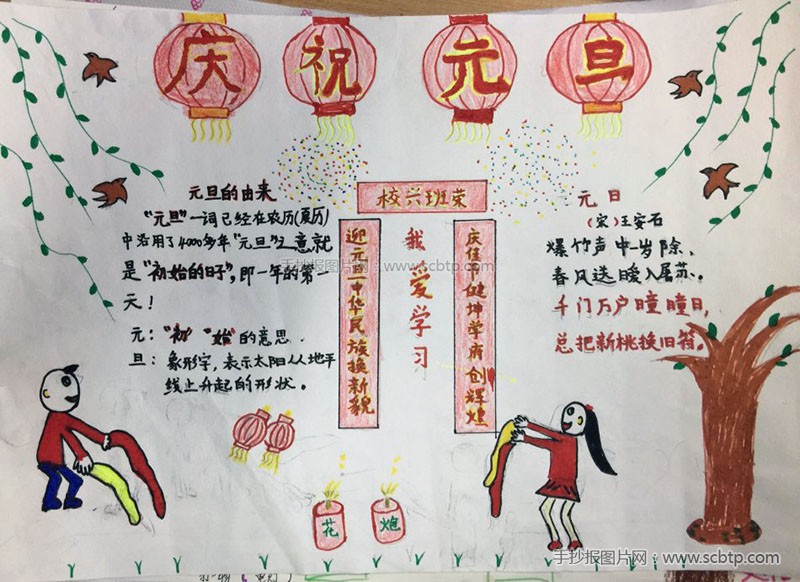 庆祝元旦
元旦的由来
"元旦"一词已经在农历(夏历)
中沿用了4000多年"元旦"之意就
是"初始的日子",即一年的第一
天!
元:"初""始"的意思.
旦:象形字,表示太阳从地平
线上升起的形状。
校兴班荣
迎元旦中华民族换新貌
我爱学习
庆佳节健坤学府创辉煌
元日
(宋)王安石
爆竹声中一岁除,
春风送暖入屠苏。
千门万户曈曈日,
总把新桃换旧符。
花
炮
手抄报图片网·www.scbtp.com
手抄报图片网·www.scbtp.com